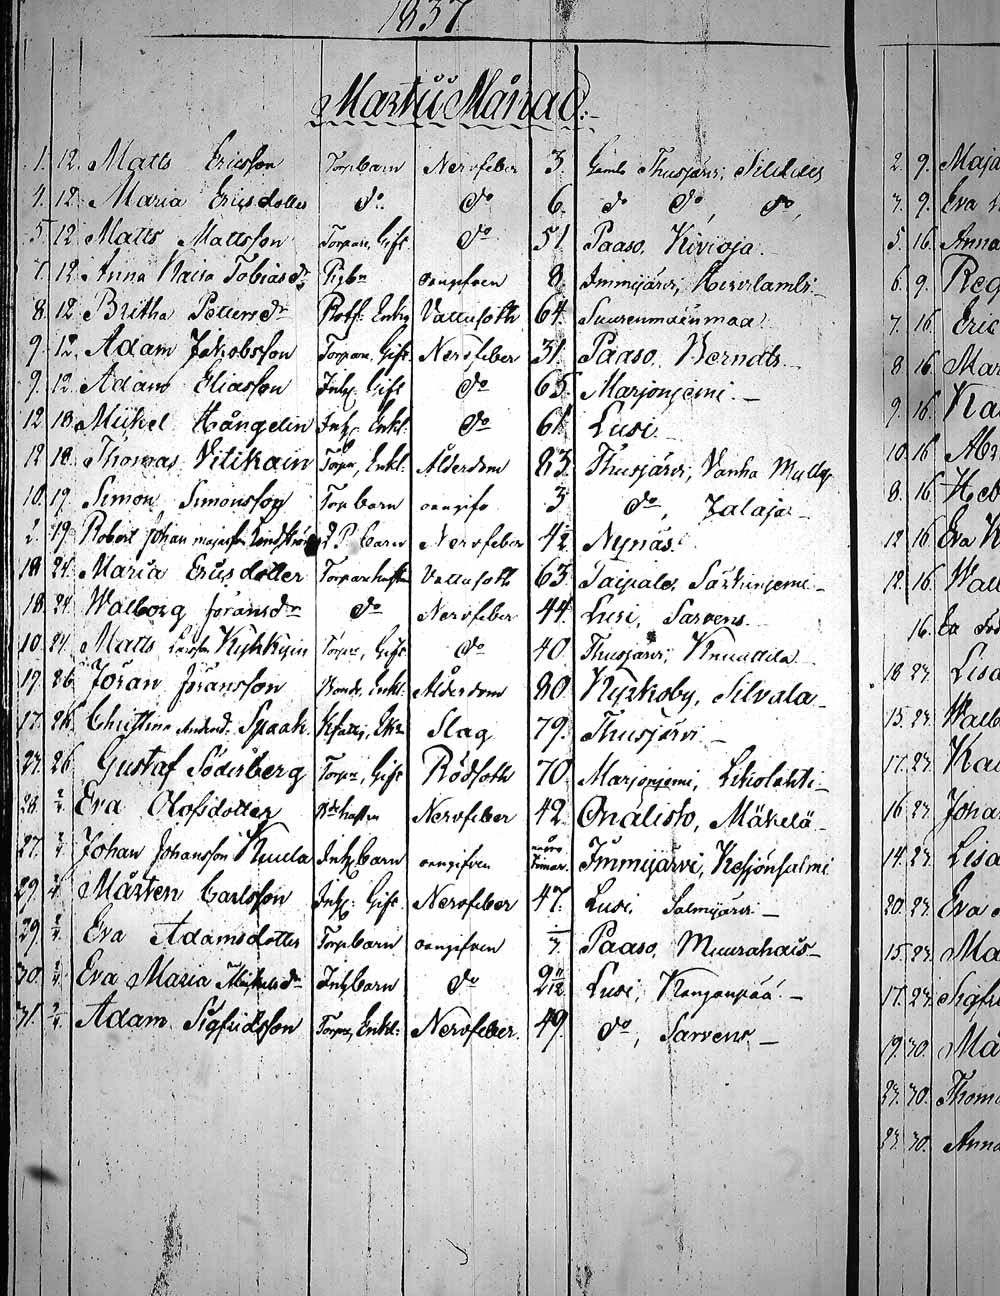 1837
Martii Månad.
1. 12. Matts Ericsson Torp barn Nervfeber 3. Gamb Thusjärvi, Sildills
4. 12. Maria Ericsdotter do. do 6. do do, do,
5. 12. Matts Mattsson Torpare, Gift do 51. Paaso, Kivioja.
7. 12. Anna Kaisa Tobiasdr oangifven 8. Immijärvi,
8. 12. Britha Pettersdr Enka Vattusoth 64. Suurenmäenmaa.
9. 12. Adam Jakobsson Torpare, Gift Nervfeber 31. Paaso, Berndts.
9. 12. Adam Eliasson Inhs. Gift do 65. Marjonjemi.
12. 18. Mickel Hångelin Inhs. Enkl. do 61. Lusi.
12. 18. Thomas Vitikain Torpr, Enkl. Ålderdom 83. Thusjärvi, Vanha Mylly
10. 19. Simon Simonsson Torp barn oangifv 3. do, Jalaja
2. 19. Robert Johan barn Nervfeber Nynäs.
18. 24. Maria Ericsdotter Vattusoth 63. Taipale, Särkinjemi
18. 24. Walborg Joransdr do Nervfeber 44. Lusi, Sarvens.
10. 24. Matts Kyhkyin Torpr, Gift do 40. Thusjärvi, Knuuttila
19. 26. Jöran Jöransson Bonde, Enkl. Ålderdom 80. Kyrkoby, Silvala
17. 26. Christina Andersd. Spaak Slag 79. Thusjärvi
24. 26. Gustaf Söderberg Torpr, Gift Rödsoth 70. Marjonjemi, Leholahti
28. 2/4 Eva Olofsdotter Nervfeber 42. Onalisto, Mäkelä
27. 2/4 Johan Johansson Kuula Inhs barn oangifven några timar. Immijärvi, Keskonsalmi
29. 2/4 Mårten Carlsson Inhs. Gift Nervfeber 47. Lusi, Salmijärvi
29. 2/4 Eva Adamsdotter Torp barn oangifven Paaso, Muurahais
30. 2/4 Eva Maria Mickelsdr Inhs barn do Lusi, Kanganpää.
31. 2/4 Adam Sigfridsson Torpr, Enkl. Nervfeber. 49. do, Sarvens,
2. 9. Maja
7. 9. Eva
5. 16. Anna
6. 9. Reg
7. 16. Eric
8. 16. Mar
9. 16. Ka
10. 16.
8. 16. Hed
12. 16. Eva K
12. 16. Walb
16.
18. 23. Lisa
15. 23. Walb
17. 23. Kai
16. 23. Joha
14. 23. Lisa
20. 23. Eva
15. 23. Ma
17. 23. Sigfri
19. 30. Ma
23. 30. Thoma
23. 30. Anna